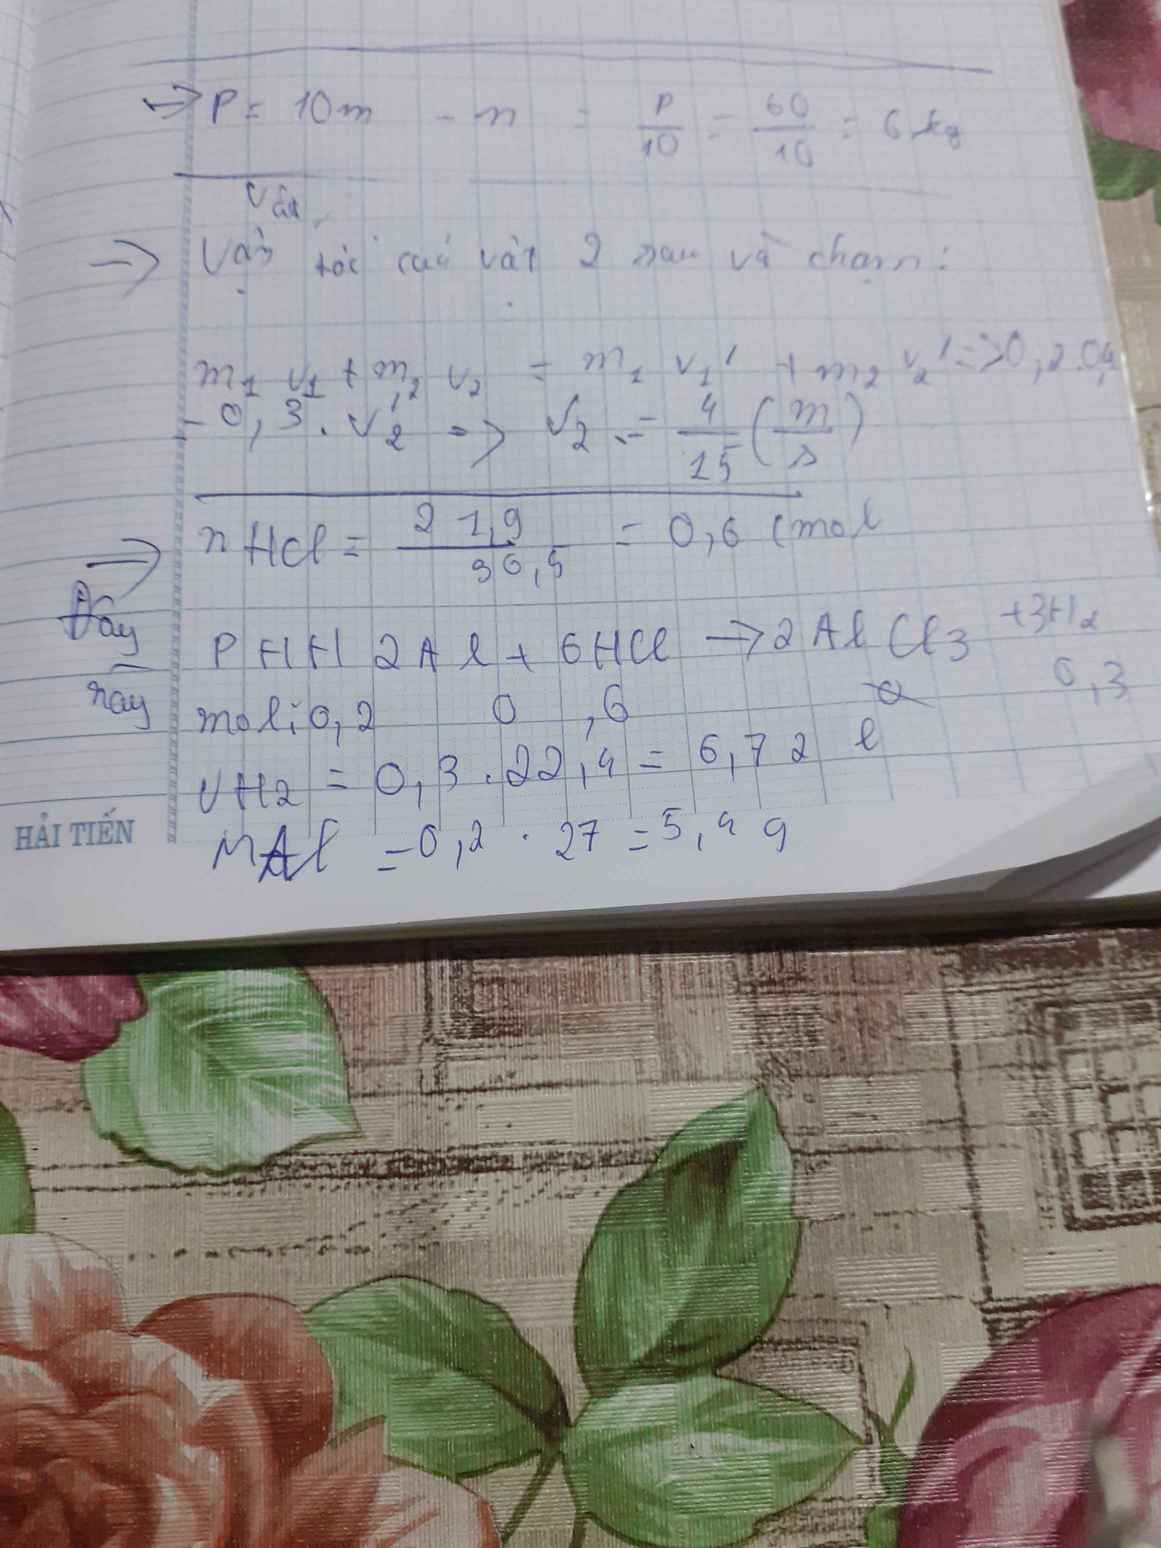 => P = 10m - m = P/10 = 60/10 = 6 kg
Vận
=> Vận tốc của vật 2 sau va chạm:
m1 v1 + m2 v2 = m1 v1' + m2 v2' => 0,2.0,4
= 0,3.v2' => v2 = 4/15 (m/s)
=> nHCl = 21,9/36,5 = 0,6 (mol
Đây
PHH 2Al + 6HCl -> 2AlCl3 +3H2
này
mol: 0,2 0,6 0,3
VH2 = 0,3.22,4 = 6,72 l
MAl = 0,2.27 = 5,4 g
HẢI TIẾN